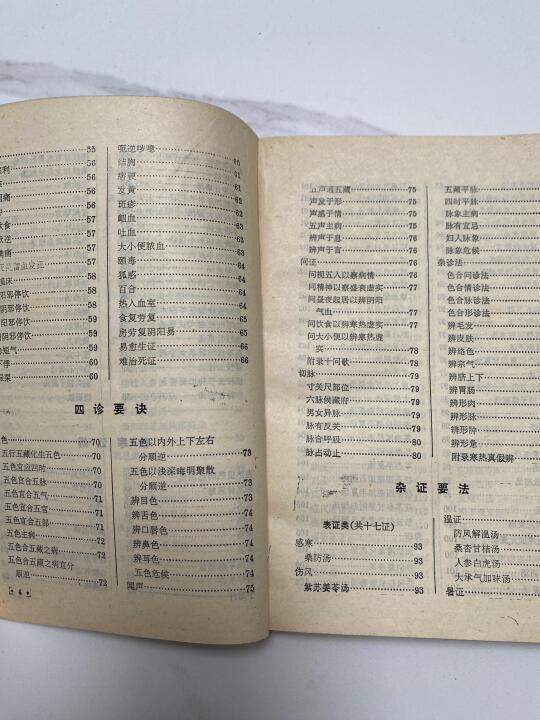 55
利 56
56
痛 56
57
饮食 57
逆 57
痛 57
58
摸床 58
阳邪停饮 58
阳邪停饮 59
阴邪停饮 59
短气 59
下悸 60
60
呃逆哕噫 60
结胸 61
痞硬 61
发黄 62
斑疹 62
衄血 63
吐血 63
大小便脓血 63
颐毒 64
狐惑 64
百合 64
热入血室 64
食复劳复 65
房劳复阴阳易 65
易愈生证 66
难治死证 66
四诊要诀
色 70
五行五藏化生五色 70
五色宜应四时 70
五色宜合五脉 70
五色宜合五气 71
五色宜合五官 71
五色宜合五部 71
五色主病 71
五色合五藏之病 72
五色合五藏之病宜分
顺逆 72
五色以内外上下左右
分顺逆 73
五色以浅深晦明聚散
分顺逆 73
辨目色 73
辨舌色 74
辨口唇色 74
辨鼻色 74
辨耳色 74
五色危候 74
闻声 75
• 4 •
五声通五藏 75
声发于形 75
声感于情 75
五声主病 76
辨声于息 76
辨声于言 76
问证 76
问视五入以察病情 76
问精神以察盛衰虚实 76
问昼夜起居以辨阴阳
气血 77
问饮食以辨寒热虚实 77
问大小便以辨寒热虚
实 78
附录十问歌 78
切脉 79
寸关尺部位 79
六脉候藏府 79
男女异脉 79
脉有反关 80
脉合呼吸 80
脉占动止 80
五藏平脉
四时平脉
脉象主病
脉有宜忌
妇人脉象
脉象危候
杂诊法
色合问诊法
色合情诊法
色合脉诊法
色合形诊法
辨毛发
辨皮肤
辨络色
辨宗气
辨脐上下
辨胃肠
辨形肉
辨形脉
辨形惫
附录寒热真假辨
杂证要法
表证类(共十七证)
感寒 93
桑防汤 93
伤风 93
紫苏姜苓汤 93
温证
防风解温汤
桑杏甘桔汤
人参白虎汤
大承气加味汤
暑证